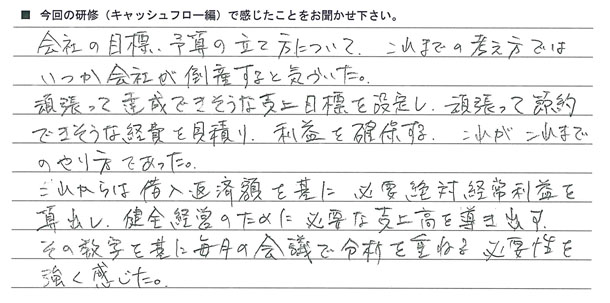 ■ 今回の研修（キャッシュフロー編）で感じたことをお聞かせ下さい。
会社の目標、予算の立て方について、これまでの考え方では
いつか会社が倒産すると気づいた。
頑張って達成できそうな売上目標を設定し、頑張って節約
できそうな経費を見積り、利益を確保する。これがこれまで
のやり方であった。
これからは借入返済額を基に必要絶対経常利益を
算出し、健全経営のために必要な売上高を導き出す。
その数字を基に毎月の会議で分析を重ねる必要性を
強く感じた。